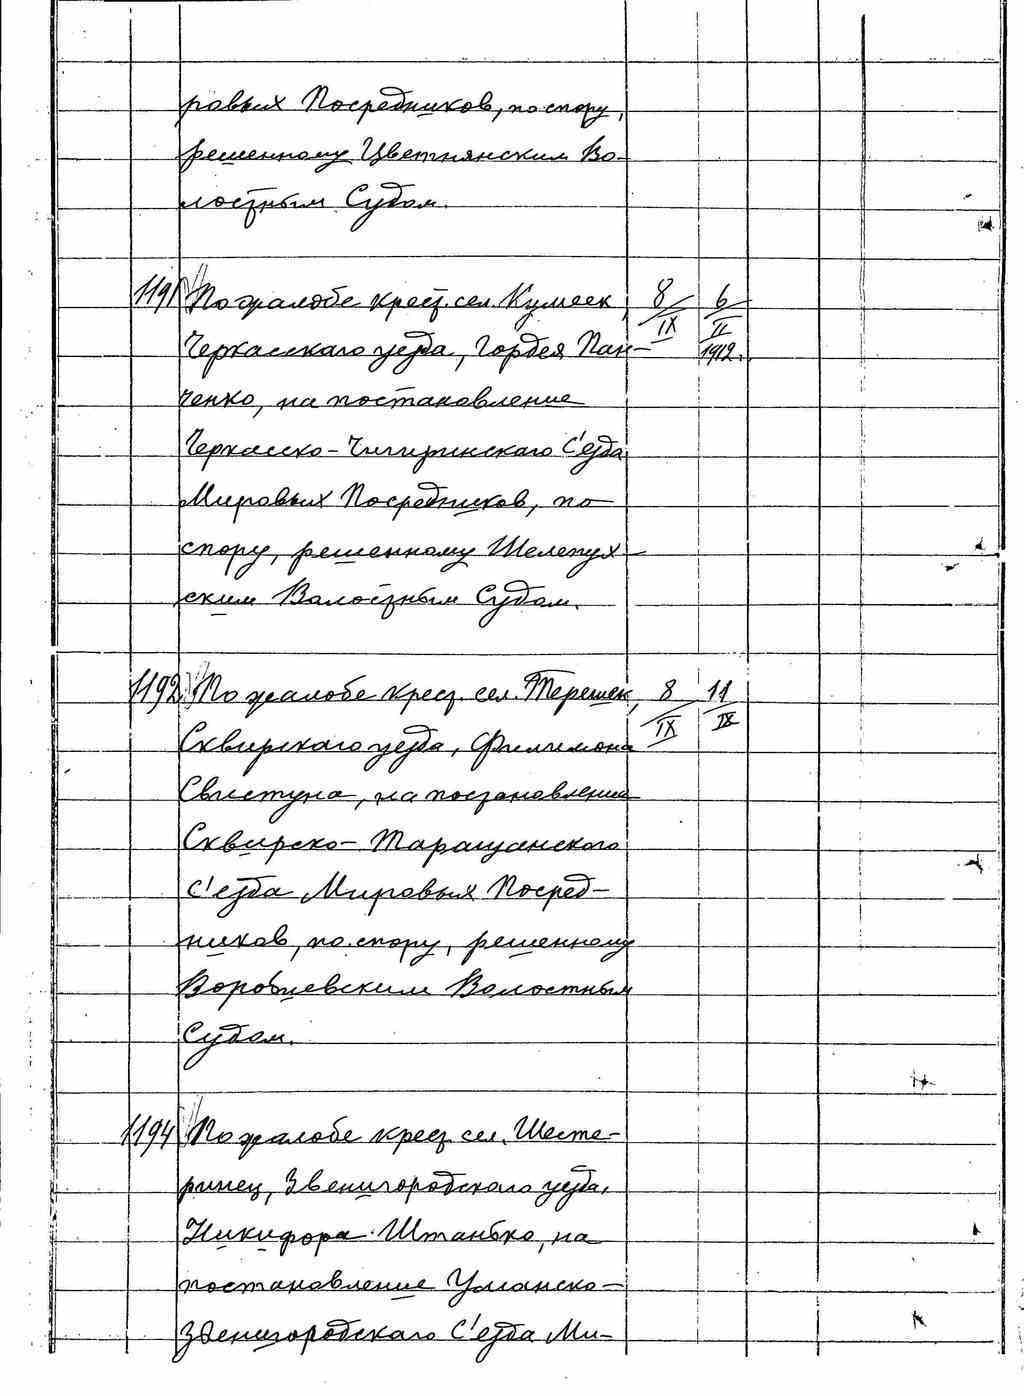 ровых Посредников, по спору,
решенному Цветнянским Во-
лостным Судом.
1191 По жалобе крест. сел. Кумеек, 8/IX 6/II 1912.
Черкасскаго уезда, Гордея Пан-
ченко, на постановление
Черкасско-Чигиринскаго С'езда
Мировых Посредников, по
спору, решенному Шелепух-
ским Волостным Судом.
1192 По жалобе крест. сел. Терешек, 8/IX 11/IX
Сквирскаго уезда, Филимона
Свистуна, на постановление
Сквирско-Таращанского
С'езда Мировых Посред-
ников, по спору, решенному
Воробиевским Волостным
Судом.
1194 По жалобе крест. сел. Шесте-
ринец, Звенигородскаго уезда,
Никифора Штанько, на
постановление Уманско-
Звенигородскаго С'езда Ми-